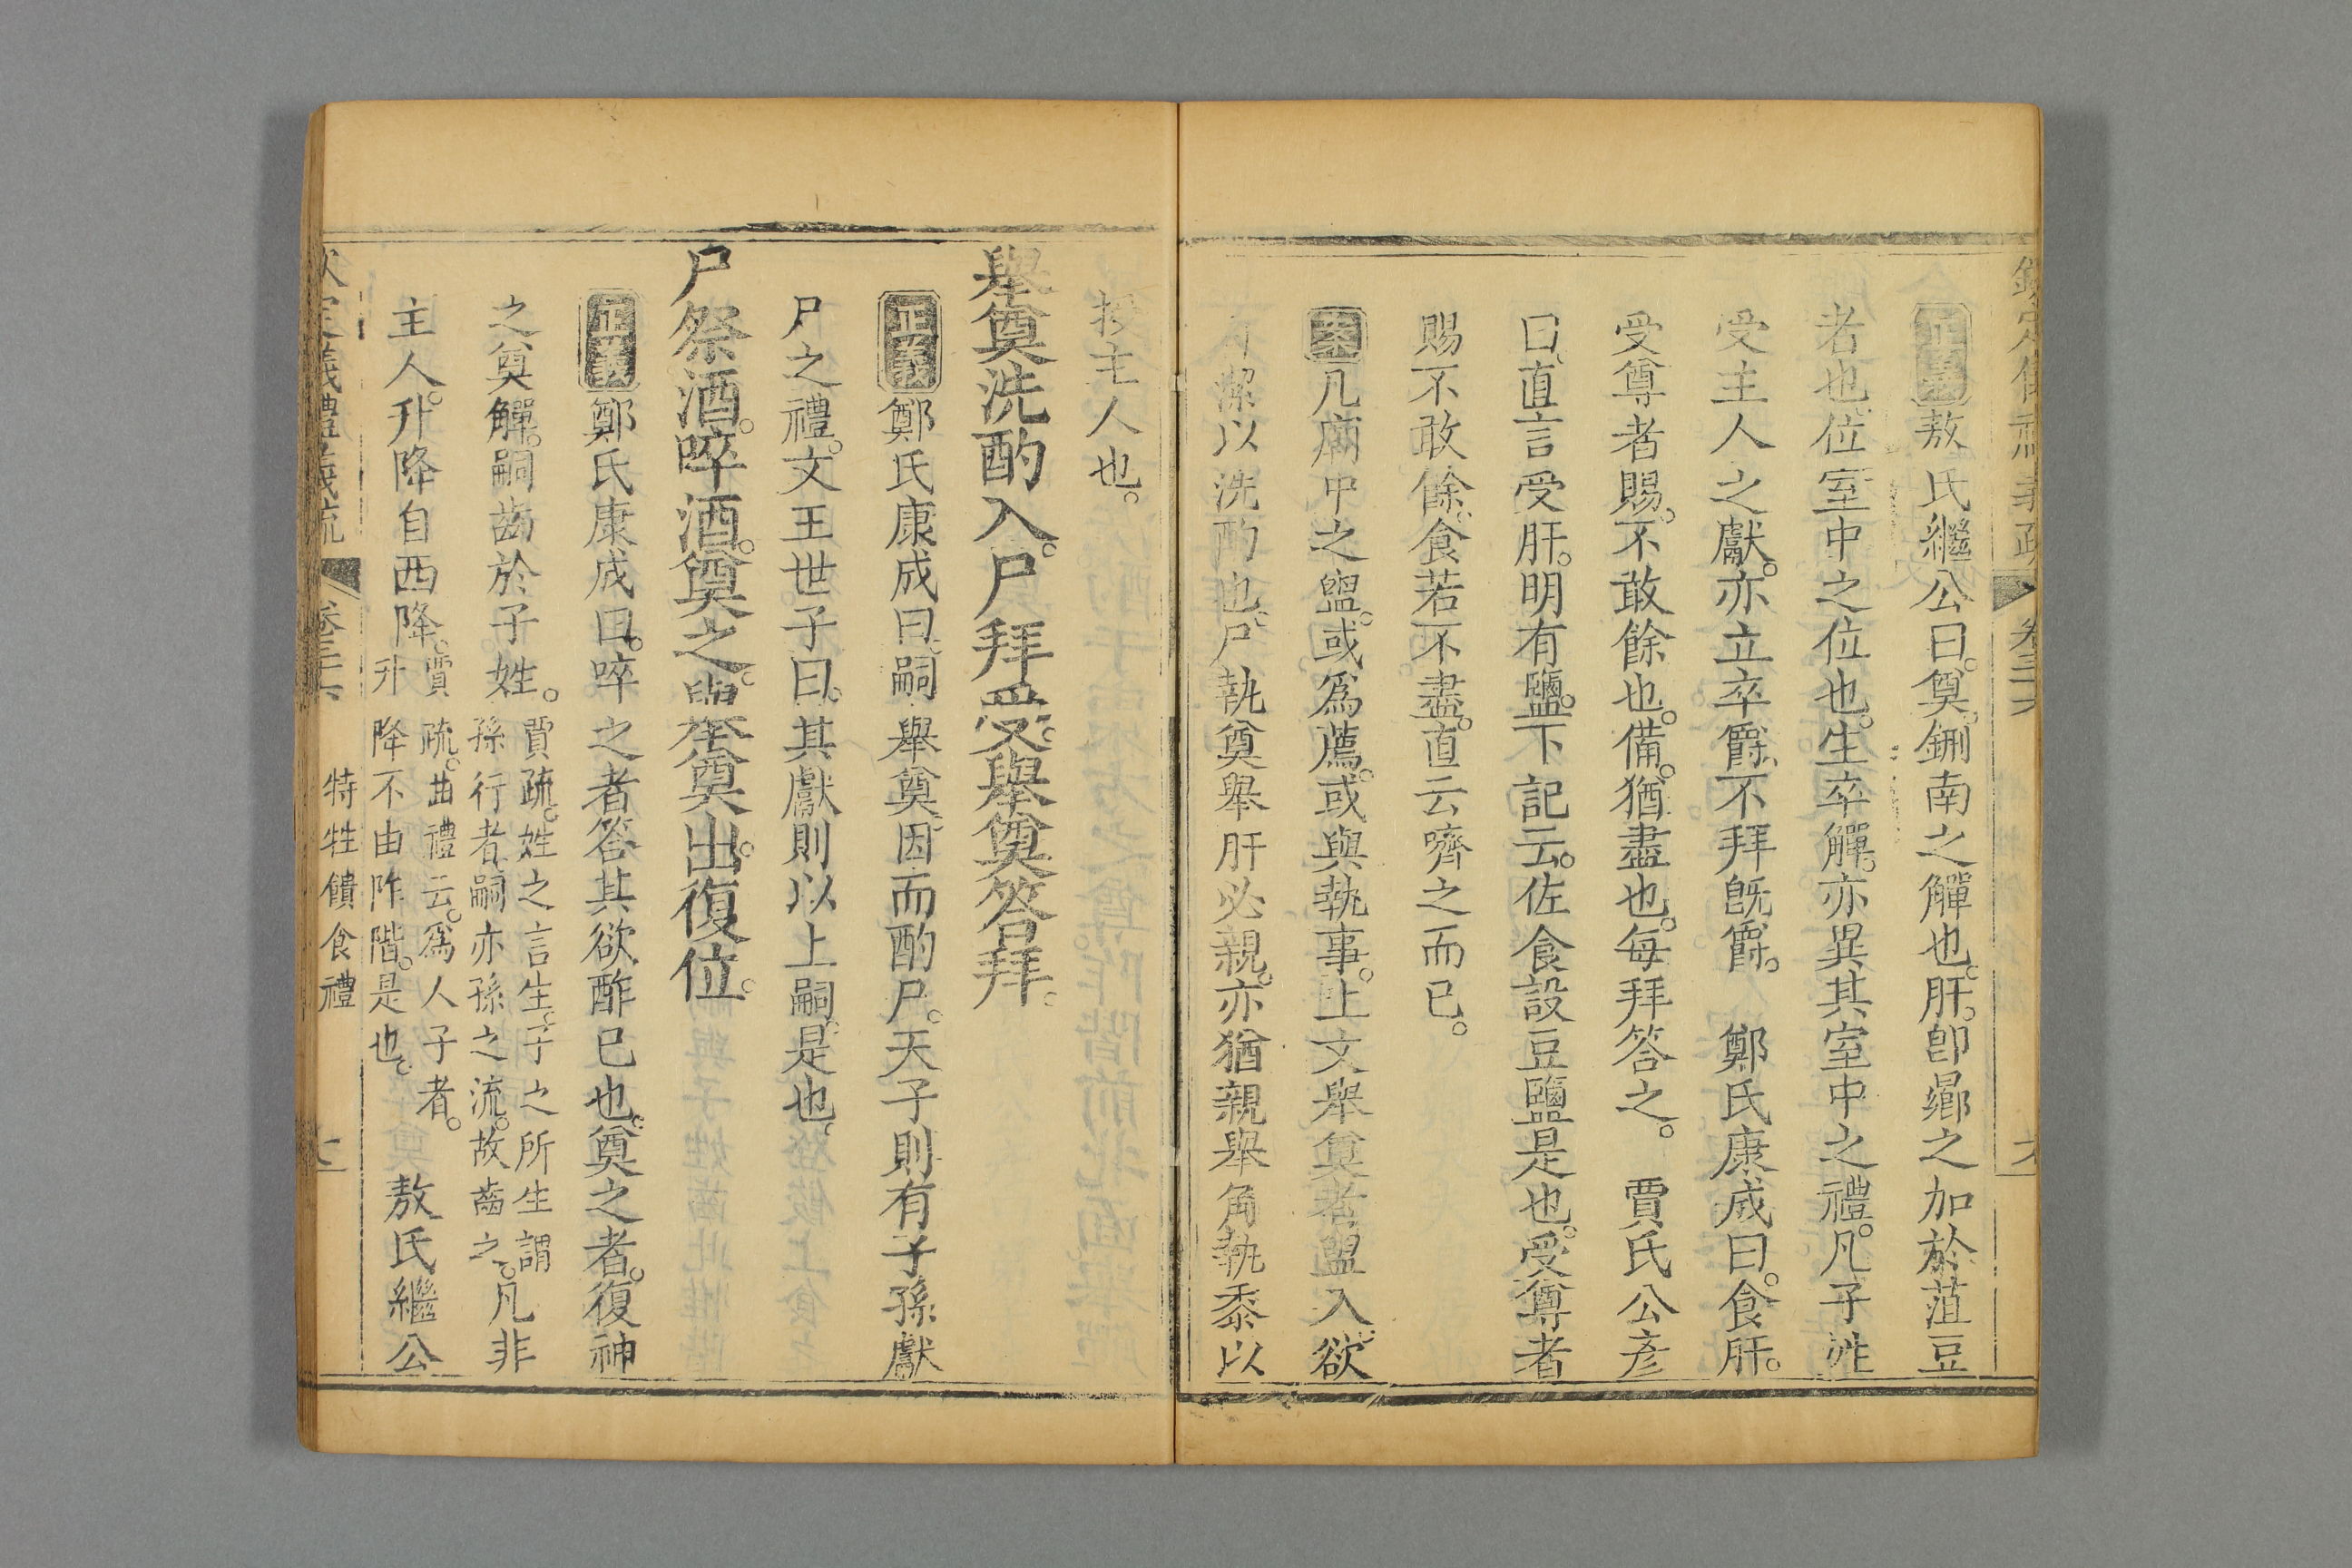 正義敖氏繼公曰。奠。鉶南之觶也。肝。卽鄉之加於菹豆
者也。位室中之位也。生卒觶。亦異其室中之禮。凡子姓
受主人之獻。亦立卒爵。不拜旣爵。 鄭氏康成曰。食肝。
受尊者賜。不敢餘也。備。猶盡也。每拜答之。 賈氏公彥
曰。直言受肝。明有鹽。下記云。佐食設豆鹽是也。受尊者
賜不敢餘。食若不盡。直云嚌之而已。
案凡廟中之盥。或爲薦。或與執事。上文舉奠者盥入。欲
潔以洗酌也。尸執奠舉肝必親。亦猶親舉角執黍以
授主人也。
舉奠洗酌入。尸拜受。舉奠答拜。
正義鄭氏康成曰。嗣舉奠。因而酌尸。天子則有子孫獻
尸之禮。文王世子曰。其獻則以上嗣。是也。
尸祭酒。啐酒。奠之。舉奠出。復位。
正義鄭氏康成曰。啐之者。答其欲酢己也。奠之者。復神
之奠觶。嗣齒於子姓。賈疏。姓之言生。子之所生謂孫行者。嗣亦孫之流。故齒之。凡非
主人。升降自西降。賈疏。曲禮云。爲人子者。升降不由阼階。是也。 敖氏繼公
欽定儀禮義疏 卷三十六 特牲饋食禮